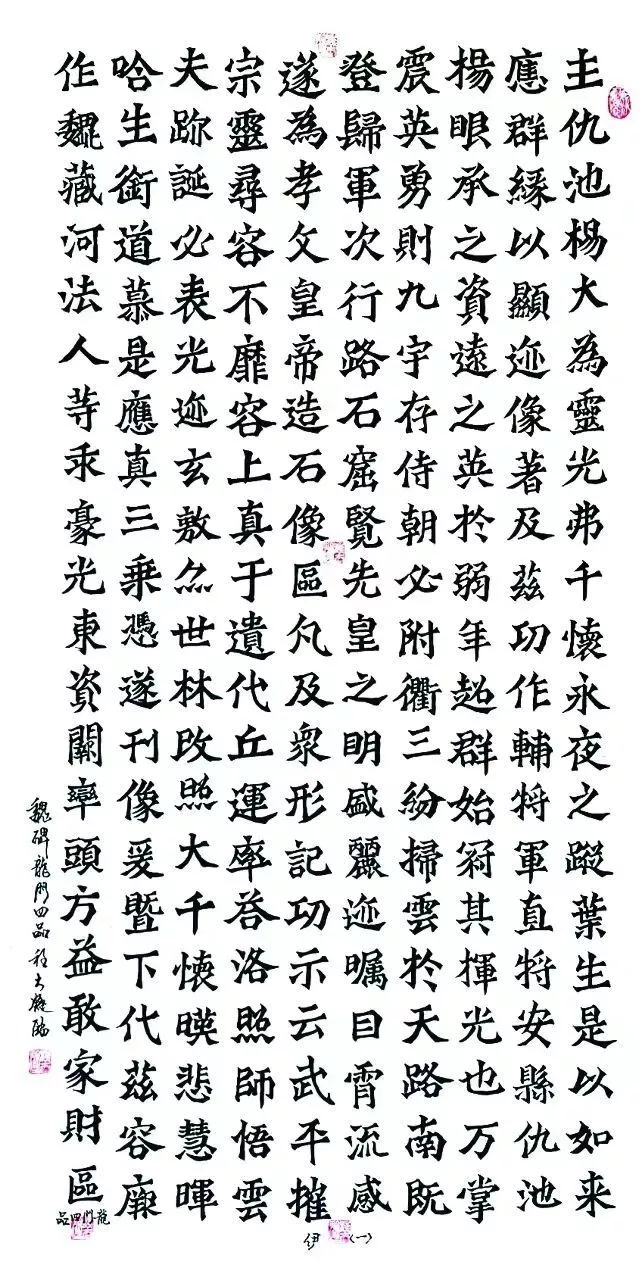 主仇池楊大為靈光弗千懷永夜之蹤葉生是以如来
應群緣以顯迹像著及茲功作輔將軍直將安縣仇池
揚眼承之資遠之英於弱年超群始冠其揮光也万掌
震英勇則九宇存侍朝必附衢三紛掃雲於天路南既
登歸軍次行路石窟覽先皇之明盛麗迹矚目霄流感
遂為孝文皇帝造石像區凡及眾形記功示云武平摧
宗靈尋容不靡容上真于遺代丘運率答洛照師悟雲
夫跡誕必表光迹玄敷尒世林改照大千懷暎悲慧暉
哈生銜道慕是應真三乘憑遂刊像爰暨下代茲容
作魏藏河法人等乖豪光東資闕率頭方益敢家財區
魏碑龍門四品程大癡臨
龍門四品
伊（一）